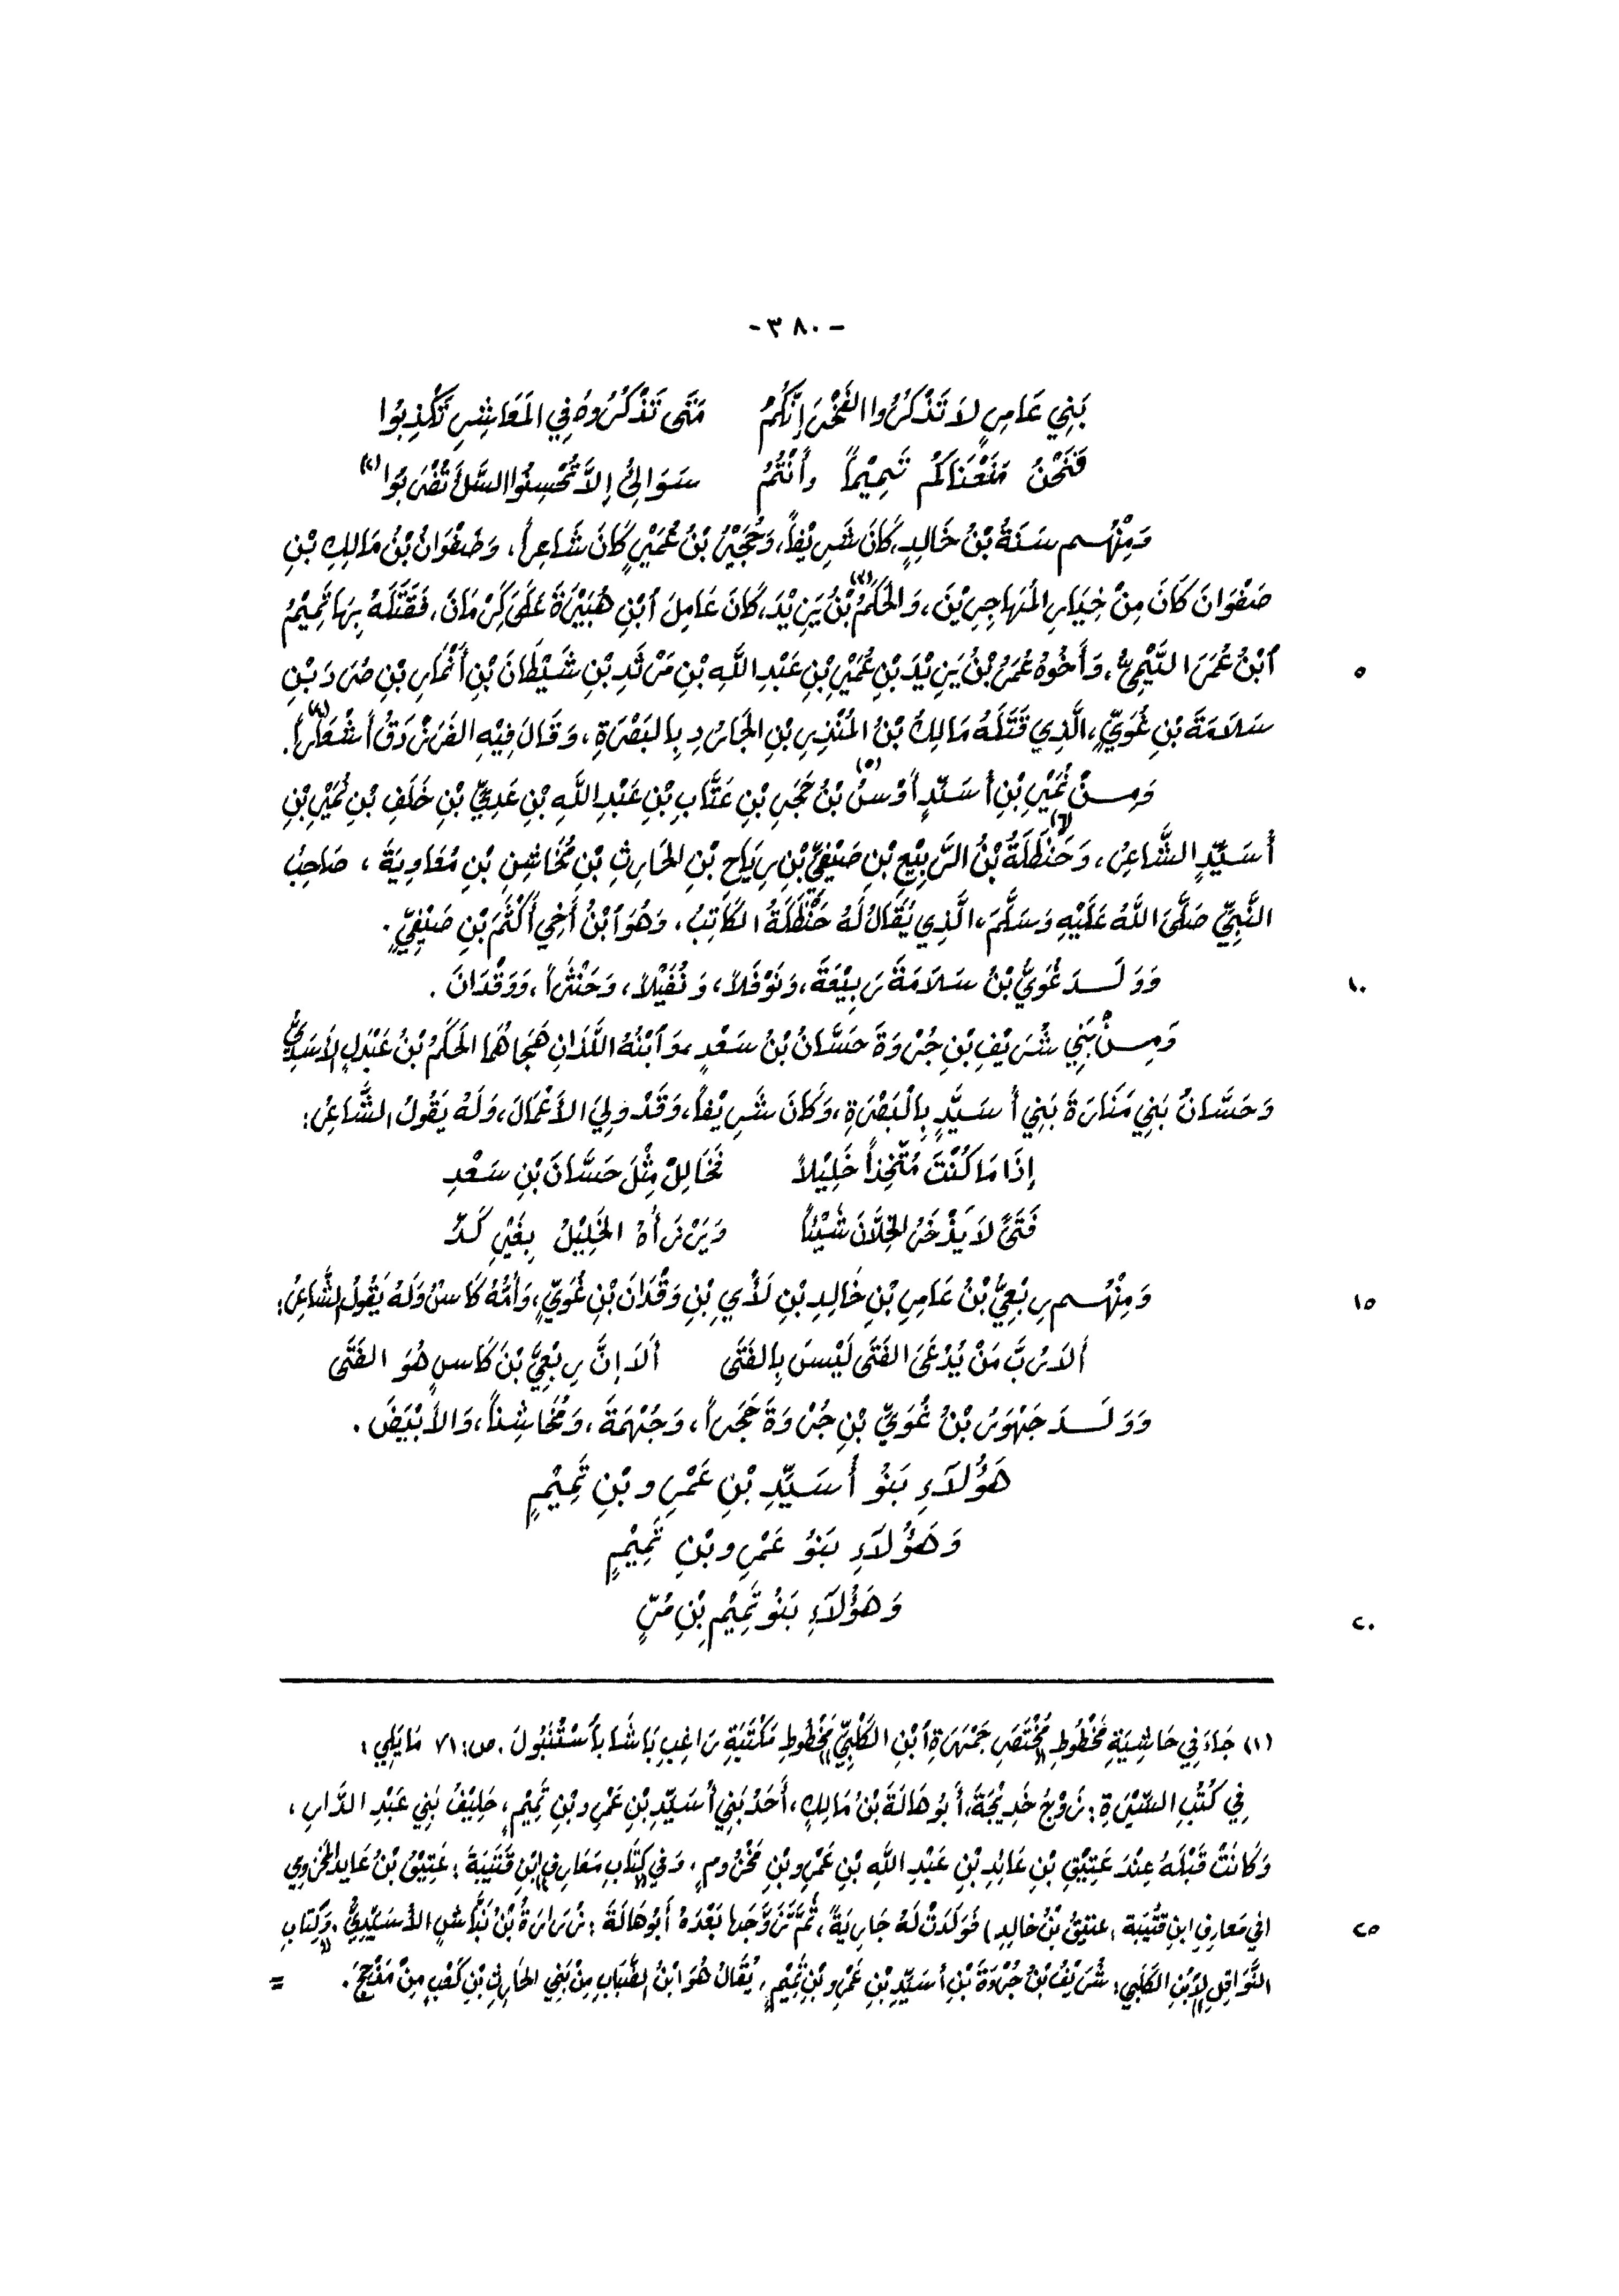 - ٣٨٠ -
بَنِي عَامِرٍ لَا تَذْكُرُوا الفَخْرَ إِنَّكُمْ مَتَى تَذْكُرُوهُ فِي المَعَاشِرِ تُكْذَبُوا
فَنَحْنُ مَنَعْنَاكُمْ تَمِيْماً وأَنْتُمُ سَوَالِئُ إِلَّا تُحْسِنُوا السَّلْءَ تُضْرَبُوا (٢)
وَمِنْهُم سَنَةُ بْنُ خَالِدٍ، كَانَ شَرِيْفاً، وَحُجَيْرُ بْنُ عُمَيْرٍ كَانَ شَاعِراً، وَصَفْوَانُ بْنُ مَالِكِ بْنِ
صَفْوَانَ كَانَ مِنْ خِيَارِ المُهَاجِرِيْنَ، وَالحَكَمُ (٣) بْنُ يَزِيْدَ، كَانَ عَامِلَ ٱبْنِ هُبَيْرَةَ عَلَى كِرْمَانَ، فَقَتَلَهُ بِهَا تَمِيْمُ
ٱبْنُ عُمَرَ التَّيْمِيُّ، وَأَخُوهُ عُمَرُ بْنُ يَزِيْدَ بْنِ عُمَيْرِ بْنِ عَبْدِ اللَّهِ بْنِ مَرْثَدِ بْنِ شَيْطَانَ بْنِ أَنْمَارِ بْنِ صُرَدَ بْنِ ٥
سَلَامَةَ بْنِ غُوَيٍّ، الَّذِي قَتَلَهُ مَالِكُ بْنُ المُنْذِرِ بْنِ الجَارُدِ بِالبَصْرَةِ، وَقَالَ فِيْهِ الفَرَزْدَقُ أَشْعَاراً (٤).
وَمِنْ نُمَيْرِ بْنِ أُسَيِّدٍ أَوْسُ (٥) بْنُ حَجَرِ بْنِ عَتَّابِ بْنِ عَبْدِ اللَّهِ بْنِ عَدِيِّ بْنِ خَلَفِ بْنِ نُمَيْرِ بْنِ
أُسَيِّدٍ الشَّاعِرُ، وَحَنْظَلَةُ (٦) بْنُ الرَّبِيْعِ بْنِ صَيْفِيِّ بْنِ رِيَاحِ بْنِ الحَارِثِ بْنِ مُخَاشِنِ بْنِ مُعَاوِيَةَ، صَاحِبُ
النَّبِيِّ صَلَّى اللَّهُ عَلَيْهِ وَسَلَّمَ، الَّذِي يُقَالُ لَهُ حَنْظَلَةُ الكَاتِبُ. وَهُوَ ٱبْنُ أَخِي أَكْثَمَ بْنِ صَيْفِيٍّ.
وَوَلَدَ غُوَيُّ بْنُ سَلَامَةَ رَبِيْعَةَ، وَنَوْفَلاً، وَنُفَيْلاً، وَحَنْتَراً، وَوَقْدَانَ. ١٠
وَمِنْ بَنِي شُرَيْفِ بْنِ جُرْوَةَ حَسَّانُ بْنُ سَعْدٍ، وَٱبْنُهُ اللَّذَانِ هَجَاهُمَا الحَكَمُ بْنُ عَبْدَلٍ الأَسَدِيُّ
وَحَسَّانُ بَنِي مَنَارَةَ بَنِي أُسَيِّدٍ بِالْبَصْرَةِ، وَكَانَ شَرِيْفاً، وَقَدْ وَلِيَ الأَعْمَالَ، وَلَهُ يَقُولُ الشَّاعِرُ:
إِذَا مَا كُنْتَ مُتَّخِذاً خَلِيْلاً فَخَالِلْ مِثْلَ حَسَّانَ بْنِ سَعْدِ
فَتَىً لَا يَذْخَرُ الخِلَّانَ شَيْئاً وَيَرْزَأُهُ الخَلِيْلُ بِغَيْرِ كَدِّ
وَمِنْهُم رِبْعِيُّ بْنُ عَامِرِ بْنِ خَالِدِ بْنِ لَأْيِ بْنِ وَقْدَانَ بْنِ غُوَيٍّ، وَأُمُّهُ كَاسُ وَلَهُ يَقُولُ الشَّاعِرُ: ١٥
أَلَا رُبَّ مَنْ يُدْعَى الفَتَى لَيْسَ بِالفَتَى أَلَا إِنَّ رِبْعِيَّ بْنَ كَاسٍ هُوَ الفَتَى
وَوَلَدَ جَهْوَرُ بْنُ غُوَيِّ بْنِ جُرْوَةَ حَجَراً، وَجُهْمَةَ، وَمُخَاشِناً، وَالأَبْيَضَ.
هَؤُلَاءِ بَنُو أُسَيِّدِ بْنِ عَمْرِو بْنِ تَمِيْمٍ
وَهَؤُلَاءِ بَنُو عَمْرِو بْنِ تَمِيْمٍ
وَهَؤُلَاءِ بَنُو تَمِيْمِ بْنِ مُرٍّ ٢٠
(١) جَاءَ فِي حَاشِيَةِ مَخْطُوطِ «مُخْتَصَرِ جَمْهَرَةِ ٱبْنِ الكَلْبِيِّ» مَخْطُوطِ مَكْتَبَةِ رَاغِب بَاشَا بِأَسْتَنْبُولَ. ص: ٧١ مَايَلِي:
فِي كُتُبِ السِّيْرَةِ: زَوْجُ خَدِيْجَةَ، أَبُو هَالَةَ بْنُ مَالِكٍ، أَحَدُ بَنِي أُسَيِّدِ بْنِ عَمْرِو بْنِ تَمِيْمٍ، حَلِيْفُ بَنِي عَبْدِ الدَّارِ،
وَكَانَتْ قَبْلَهُ عِنْدَ عَتِيْقِ بْنِ عَائِدِ بْنِ عَبْدِ اللَّهِ بْنِ عَمْرِو بْنِ مَخْزُومٍ، وَفِي «كِتَابِ مَعَارِفِ ابْنِ قُتَيْبَةَ»: عَتِيْقُ بْنُ عَايد المخزوي
(في مَعَارِفِ ابنِ قُتَيْبَة: عتيقُ بْنُ خالِدٍ) فَوَلَدَتْ لَهُ جَارِيَةً، ثُمَّ تَزَوَّجَهَا بَعْدَهُ أَبُو هَالَةَ: زُرَارَةُ بْنُ نَبَّاشٍ الأُسَيِّدِيُّ، وَ«كِتَابِ ٢٥
النَّوَاقِلِ لِابْنِ الكَلْبِي»: شُرَيْفُ بْنُ جُرْوَةَ بْنِ أُسَيِّدِ بْنِ عَمْرِو بْنِ تَمِيْمٍ، يُقَالُ هُوَ ابْنُ الضَّبَابِ مِنْ بَنِي الحَارِثِ بْنِ كَعْبٍ مِنْ مَذْحِجَ. =